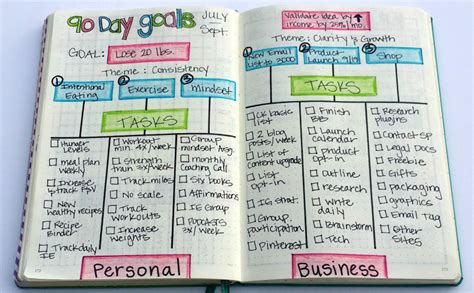 90 Day goals
JULY
Sept.
GOAL: Lose 20 lbs.
Theme: Consistency
1 2 3
Intentional
Eating
Exercise
mindset
TASKS
Hunger
Levels
meal plan
weekly
Increase
New
healthy recipes
Recipe
Binder
Track daily
IE
Workout
min. 4x/week
Strength
train 3x/week
Track miles
No scale
Track
workouts
Increase
weights
Group
mindset
monthly
Coaching Call
Six books
Affirmations
IE Group
Podcasts
3x/week
Personal
Validate idea by
income by 25%/mo.
Theme: Clarity & Growth
1 2 3
New Email
List to 2000
Product
Launch
Shop
TASKS
CK basic
list
2 blog
posts/week
List of
content upgrade
List
opt-in
IG strat.
Group
Pinterest
Finish
Launch
calendar
product
opt-in
Outline
research
write
daily
Brainstorm
Tech
Research
plugins
Contact SP
Legal Docs
Freebie
Gifts
packaging
graphics
Email Tag
Other
Sites
Business